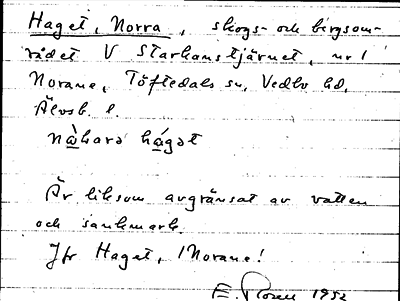 Haget, Norra, skogs- och bergsom-
rådet V Starkanstjärnet, nr 1
Norane, Töftedals sn, Vedbo hd,
Älvsb. l.
nàhara hágət
Är liksom avgränsat av vatten
och sankmark.
Jfr Haget, 1 Norane!
E. 1952